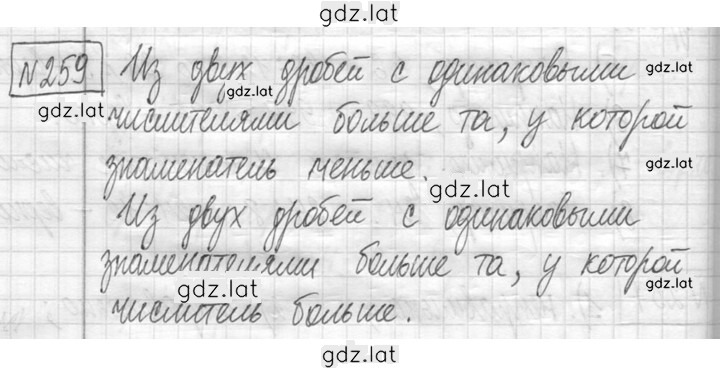 gdz.lat
№259 Из двух дробей с одинаковыми gdz.lat
gdz.lat gdz.lat
числителями больше та, у которой
знаменатель меньше. gdz.lat
gdz.lat
Из двух дробей с одинаковыми
знаменателями больше та, у которой
gdz.lat gdz.lat
числитель больше.
gdz.lat